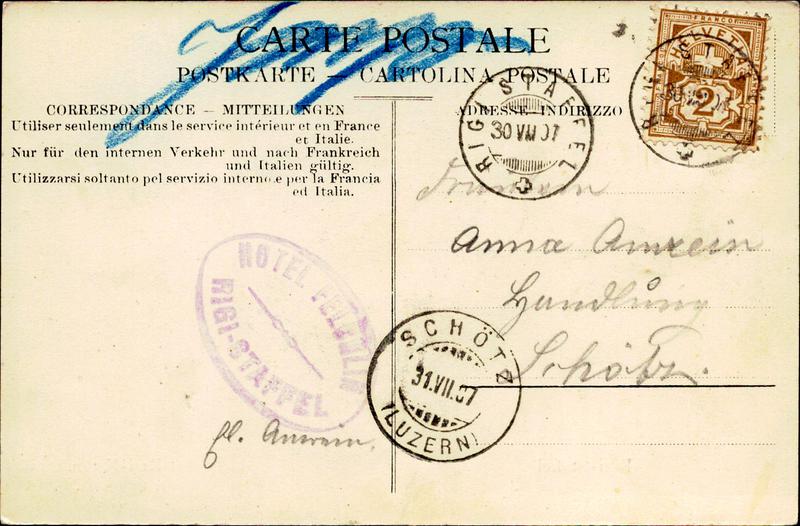 CARTE POSTALE
POSTKARTE — CARTOLINA POSTALE
CORRESPONDANCE — MITTEILUNGEN
Utiliser seulement dans le service intérieur et en France
et Italie.
Nur für den internen Verkehr und nach Frankreich
und Italien gültig.
Utilizzarsi soltanto pel servizio interno e per la Francia
ed Italia.
ADRESSE — INDIRIZZO
RIGI STAFFEL
30 VII 07
FRANCO
HELVETIA
2
Fräulein
Anna Amrein
Handlung
Schötz.
HOTEL FELCHLIN
RIGI-STAFFEL
SCHÖTZ
31.VII.07
(LUZERN)